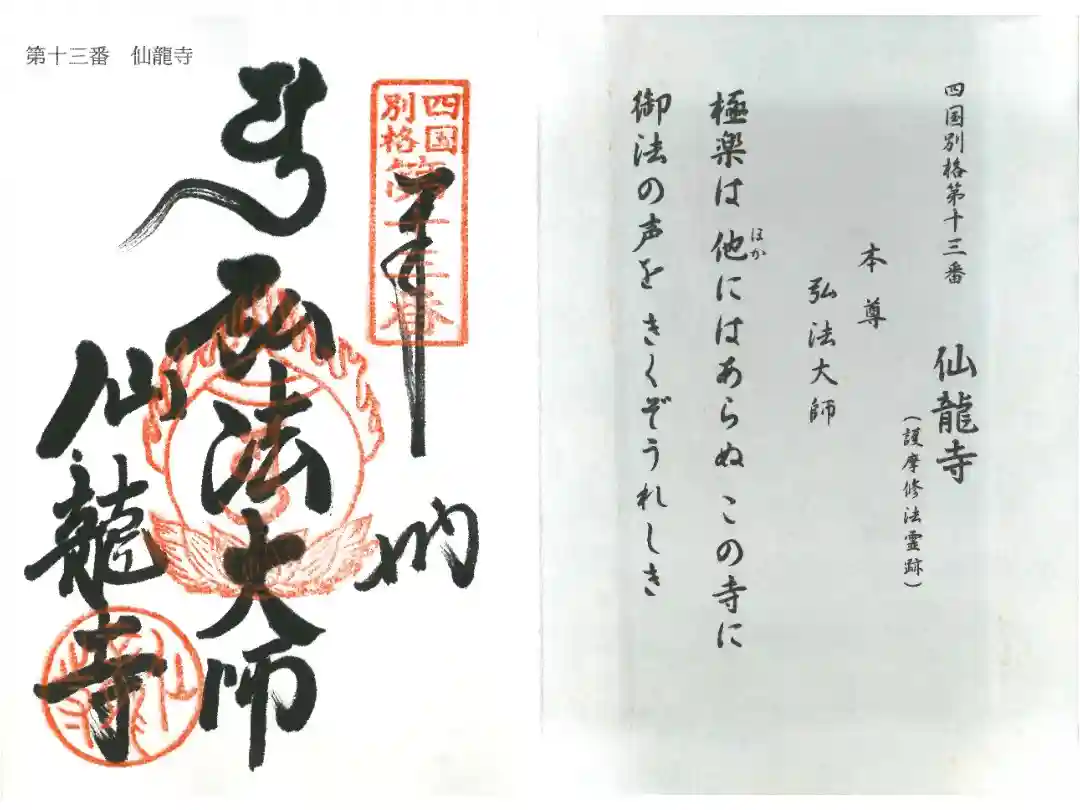 第十三番　仙龍寺
四国
別格
第十三番
奉
納
弘法大師
仙龍寺
四国別格第十三番　仙龍寺
(護摩修法霊跡)
本尊
弘法大師
極楽は他にはあらぬこの寺に
ほか
御法の声をきくぞうれしき